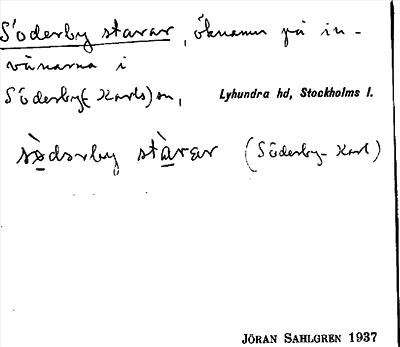 Söderby starar, öknamn på in-
vånarna i
Söderby (Karls) sn, Lyhundra hd, Stockholms l.
sὸ̲dərby stὰ̲rar (Söderby-Karl)
JÖRAN SAHLGREN 1937